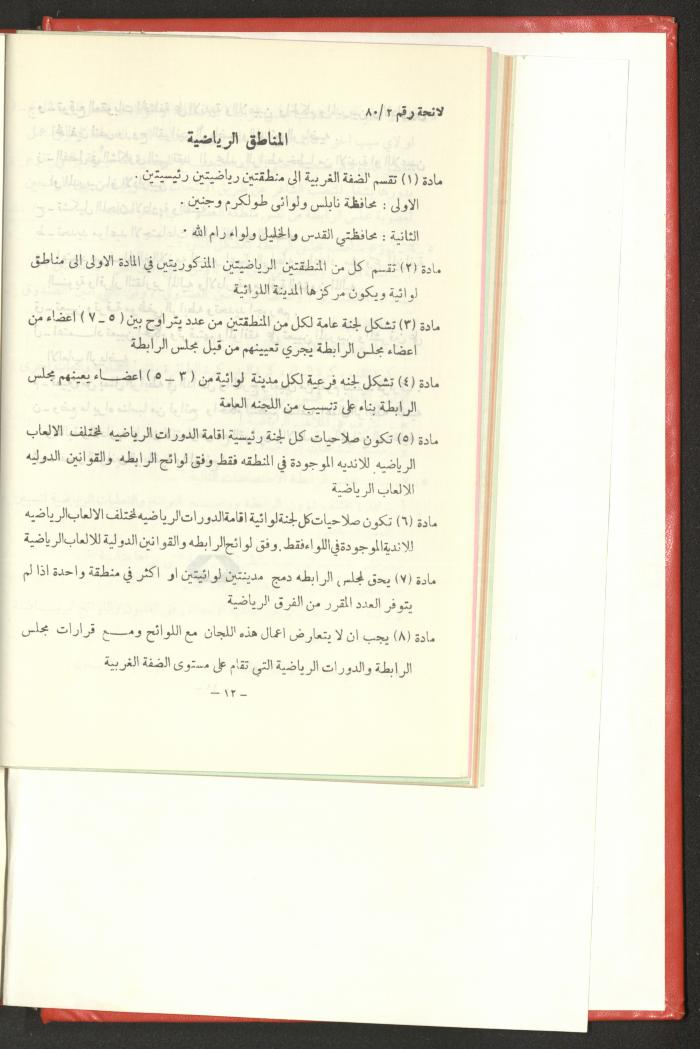 لائحة رقم ٢/ ٨٠
المناطق الرياضية
مادة (١) تقسم الضفة الغربية الى منطقتين رياضيتين رئيسيتين .
الاولى : محافظة نابلس ولوائى طولكرم وجنين .
الثانية : محافظتي القدس والخليل ولواء رام الله .
مادة (٢) تقسم كل من المنطقتين الرياضيتين المذكوريتين في المادة الاولى الى مناطق
لوائية ويكون مركزها المدينة اللوائية
مادة (٣) تشكل لجنة عامة لكل من المنطقتين من عدد يتراوح بين (٥ ــ ٧) اعضاء من
اعضاء مجلس الرابطة يجري تعيينهم من قبل مجلس الرابطة
مادة (٤) تشكل لجنه فرعية لكل مدينة لوائية من (٣ ــ ٥) اعضـــاء يعينهم مجلس
الرابطة بناء على تنسيب من اللجنه العامة
مادة (٥) تكون صلاحيات كل لجنة رئيسية اقامة الدورات الرياضيه لمختلف الالعاب
الرياضيه للانديه الموجودة في المنطقه فقط وفق لوائح الرابطه والقوانين الدوليه
للالعاب الرياضية
مادة (٦) تكون صلاحيات كل لجنة لوائية اقامة الدورات الرياضيه لمختلف الالعاب الرياضيه
للاندية الموجودة في اللواء فقط . وفق لوائح الرابطه والقوانين الدولية للالعاب الرياضية
مادة (٧) يحق لمجلس الرابطه دمج مدينتين لوائيتين او اكثر في منطقة واحدة اذا لم
يتوفر العدد المقرر من الفرق الرياضية
مادة (٨) يجب ان لا يتعارض اعمال هذه اللجان مع اللوائح ومـــع قرارات مجلس
الرابطة والدورات الرياضية التي تقام على مستوى الضفة الغربية
– ١٢ –